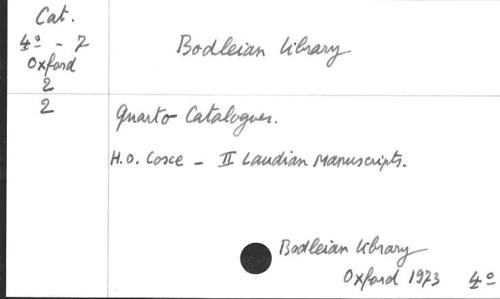 Cat.
4º - 7
Oxford
2
2
Bodleian Library
Quarto Catalogues.
H.O. Coxe - II Laudian Manuscripts.
Bodleian Library
Oxford 1973 4º